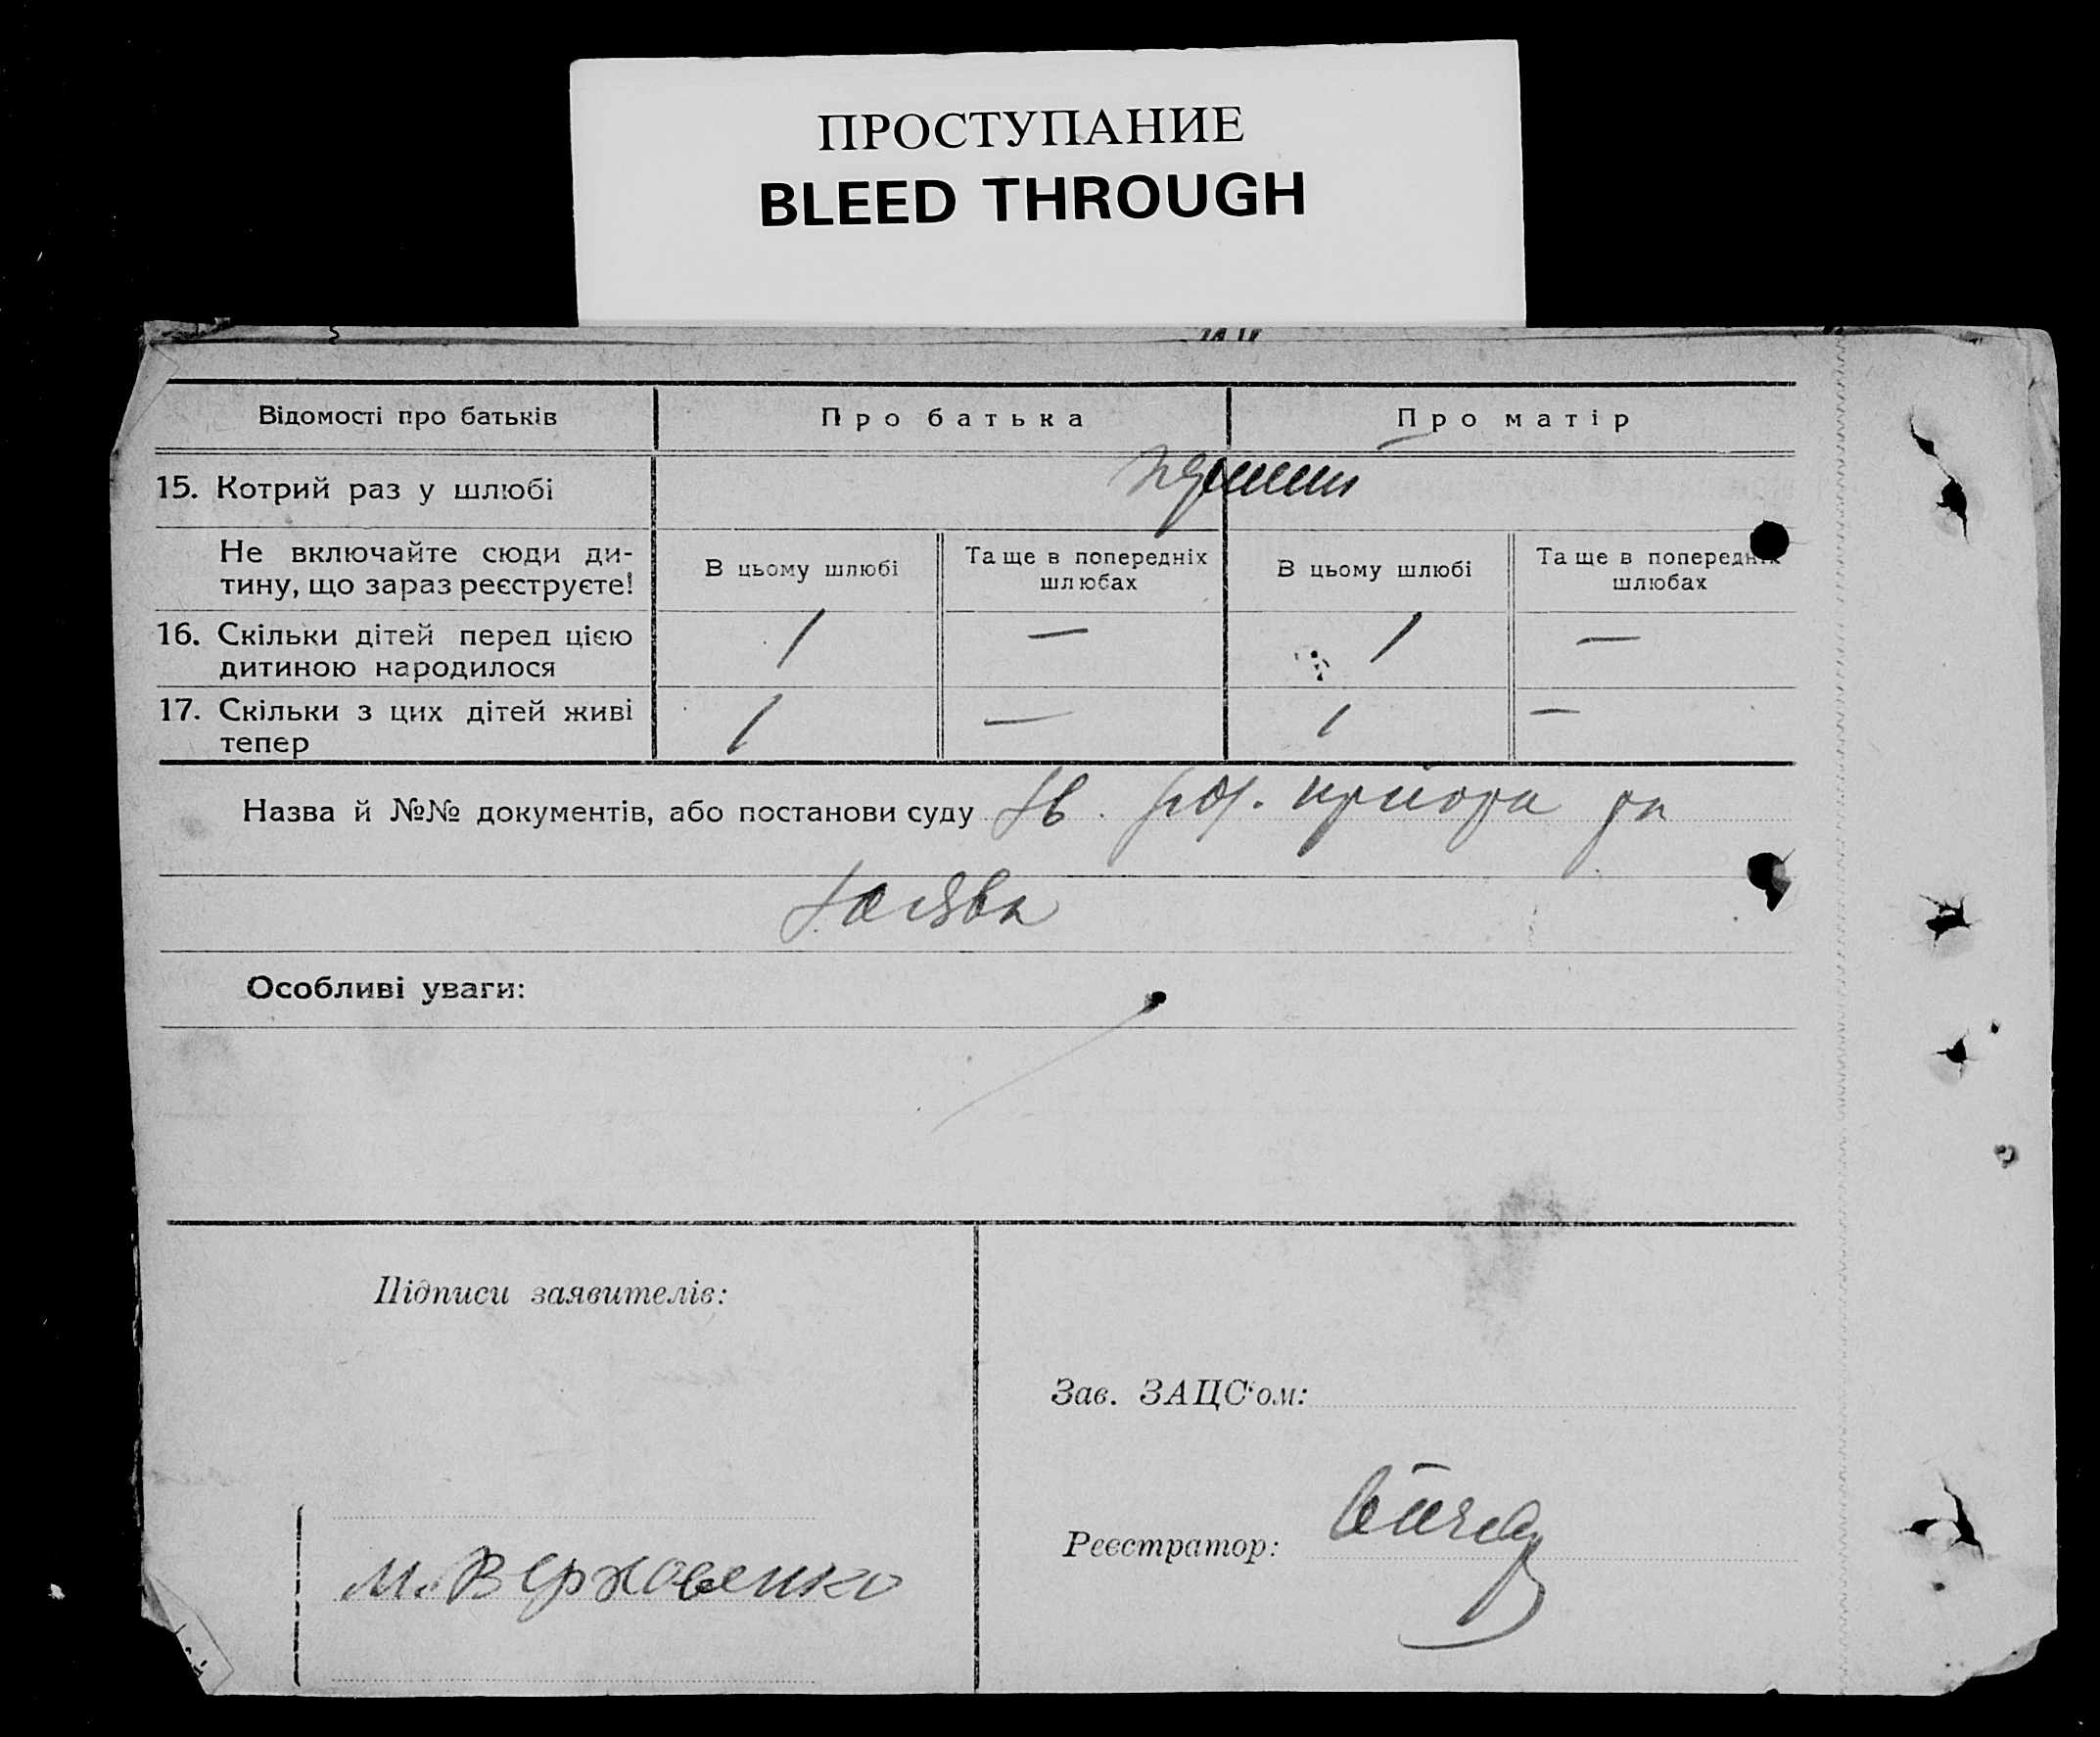 ПРОСТУПАНИЕ
BLEED THROUGH
Відомості про батьків
Про батька
Про матір
15. Котрий раз у шлюбі
Не включайте сюди ди-
тину, що зараз реєструєте!
В цьому шлюбі
Та ще в попередніх
шлюбах
В цьому шлюбі
Та ще в попередніх
шлюбах
16. Скільки дітей перед цією
дитиною народилося
1 — 1 —
17. Скільки з цих дітей живі
тепер
1 — 1 —
Назва й №№ документів, або постанови суду
Особливі уваги:
Підписи заявителів:
Зав. ЗАЦС'ом:
Реєстратор:
М. Верховенко